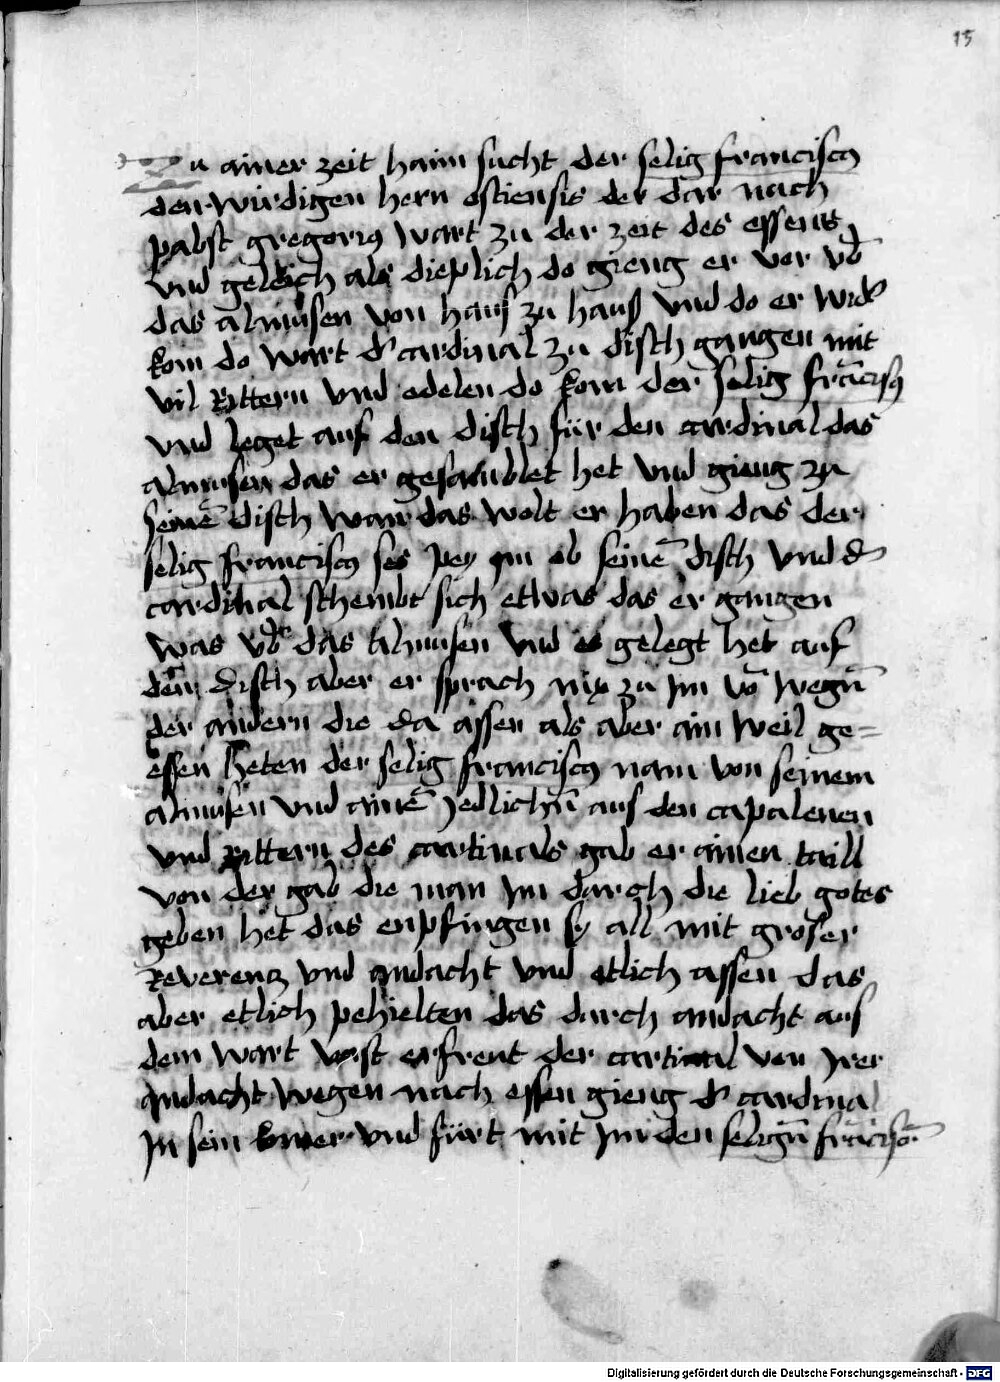 15
Zu ainer zeit haim sucht der selig franciscꝰ
den wirdigen hern ostiensis der dar nach
pabst gregoriꝰ wart zu der zeit des essens
vnd geleich als dieplich do gieng er vor vb̄
das almusen von haus zu hauß vnd do er wid᷑
kom do wart d᷑ cardinal zu disch gangen mit
vil Rittern vnd edelen do kom der selig frācisꝰ
vnd leget auf den disch für den cardinal das
almusen das er gesamblet het vnd gieng zu
seinē disch wan das wolt er haben das der
selig franciscꝰ ses pey im ob seinē disch vnd d᷑
cardinal schembt sich etwas das er gangen
was vb᷑ das almusen vnd es gelegt het auf
den disch aber er sprach nix zu jm vō wegn̄
der andern die da assen als aber ain weil ge=
essen heten der selig franciscꝰ nam von seinem
almusen vnd ainē yedlichn̄ aus den capalenen
vnd Rittern des cartinals gab er ainen taill
von der gab die man jm durch die lieb gotes
geben het das enpfingen sy all mit groser
Reverencz vnd andacht vnd etlich assen das
aber etlich pehielten das durch andacht aus
dem wart vast erfreut der cartinal von jrer
andacht wegen nach essen gieng d᷑ cardinal
jn sein kamer vnd fürt mit jm den selign̄ frācisō
Digitalisierung gefördert durch die Deutsche Forschungsgemeinschaft - DFG